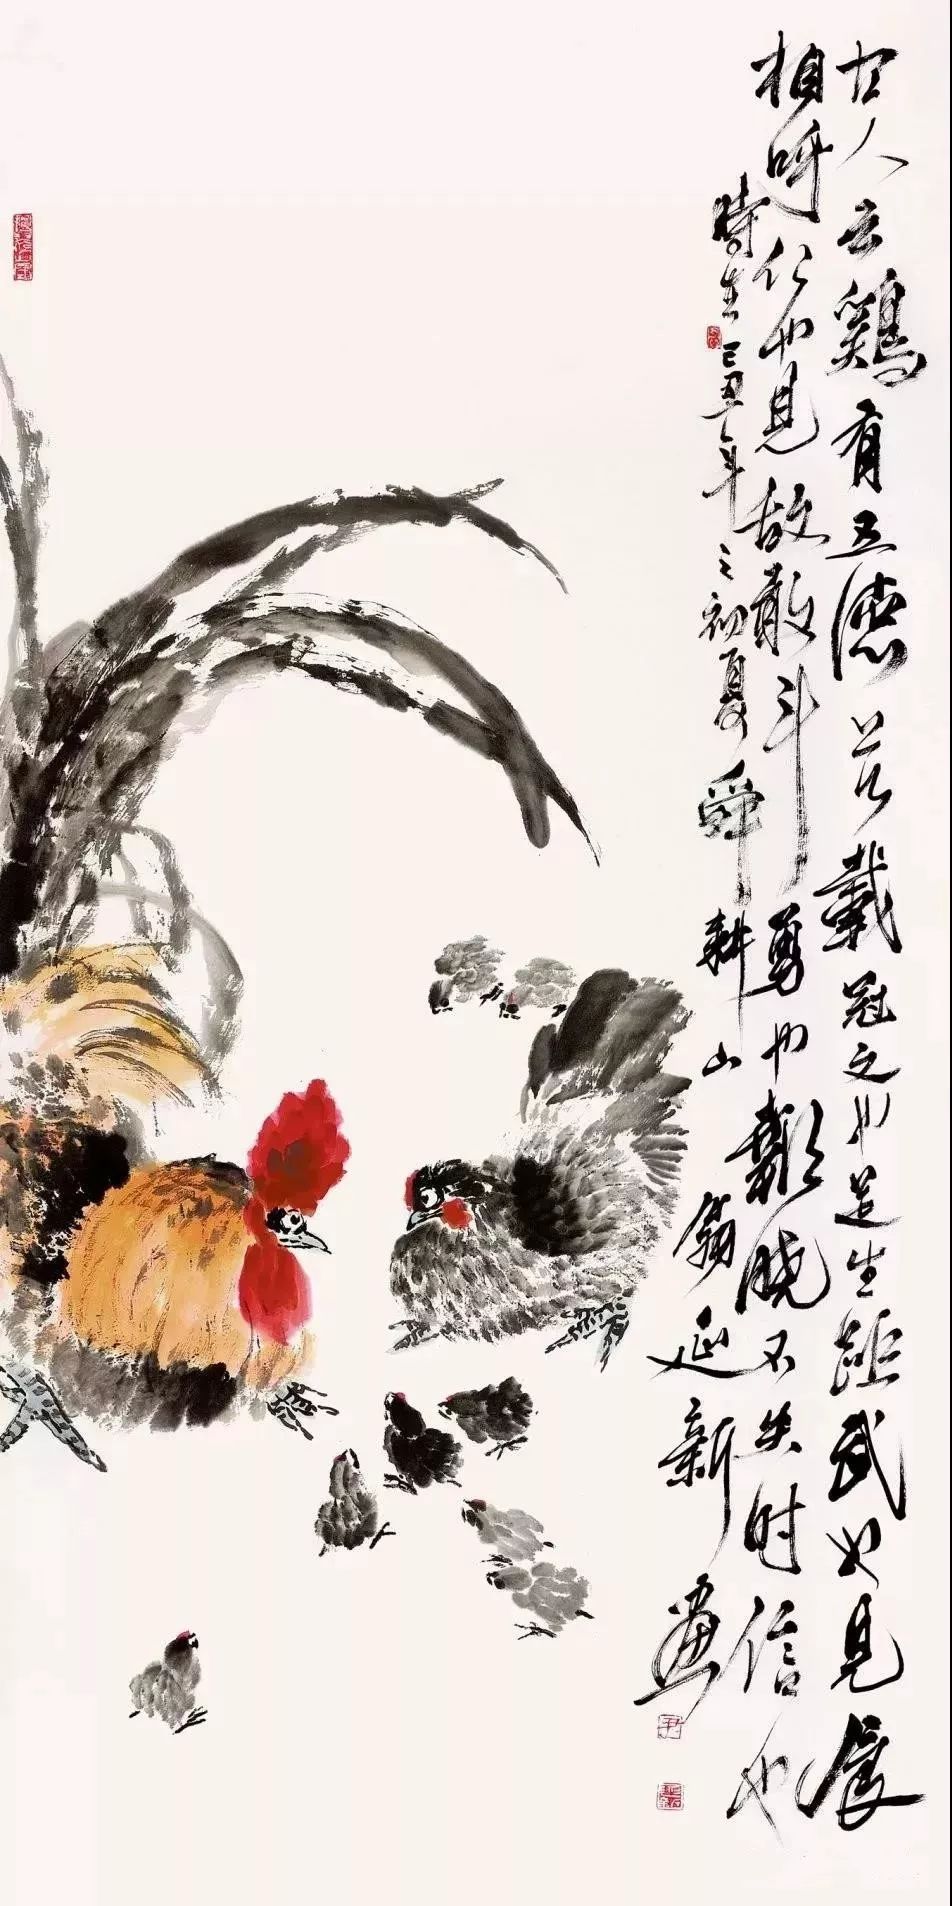 古人云鷄有五德首戴冠文也足生距武也見食
相呼仁也見敌敢斗勇也晓不失时信也
時在己丑年之初夏舜耕山翁延新畫
尹
延新